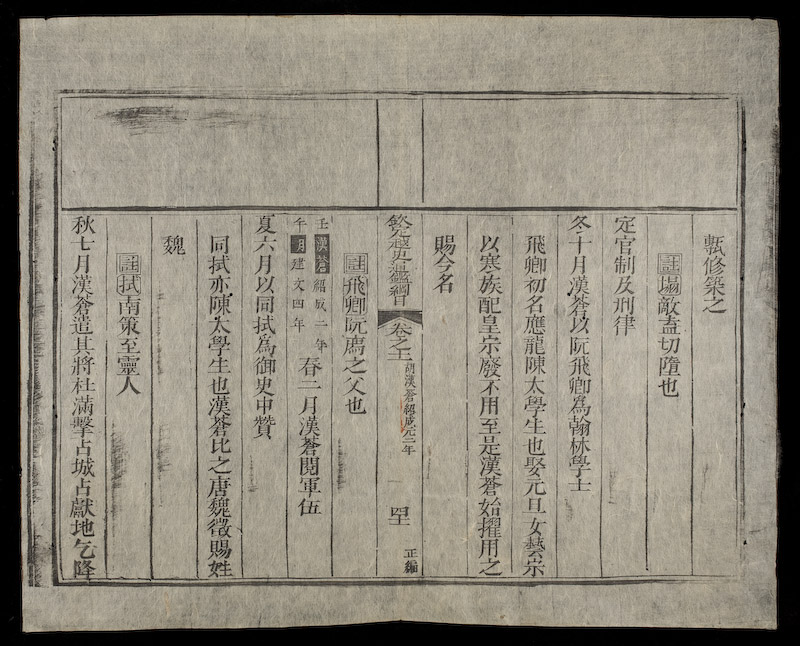 輒修築之
註塌敵盍切墮也
定官制及刑律
冬十月漢蒼以阮飛卿為翰林學士
飛卿初名應龍陳太學生也娶元旦女藝宗
以寒族配皇宗廢不用至是漢蒼始擢用之
賜今名
欽定越史通鑑綱目 卷之十二 胡漢蒼紹成元二年 四十 正編
註飛卿阮廌之父也
壬午 漢蒼紹成二年 明建文四年 春二月漢蒼閱軍伍
夏六月以同拭為御史中贊
同拭亦陳太學生也漢蒼比之唐魏徵賜姓
魏
註拭南策至靈人
秋七月漢蒼遣其將杜滿擊占城占獻地乞降